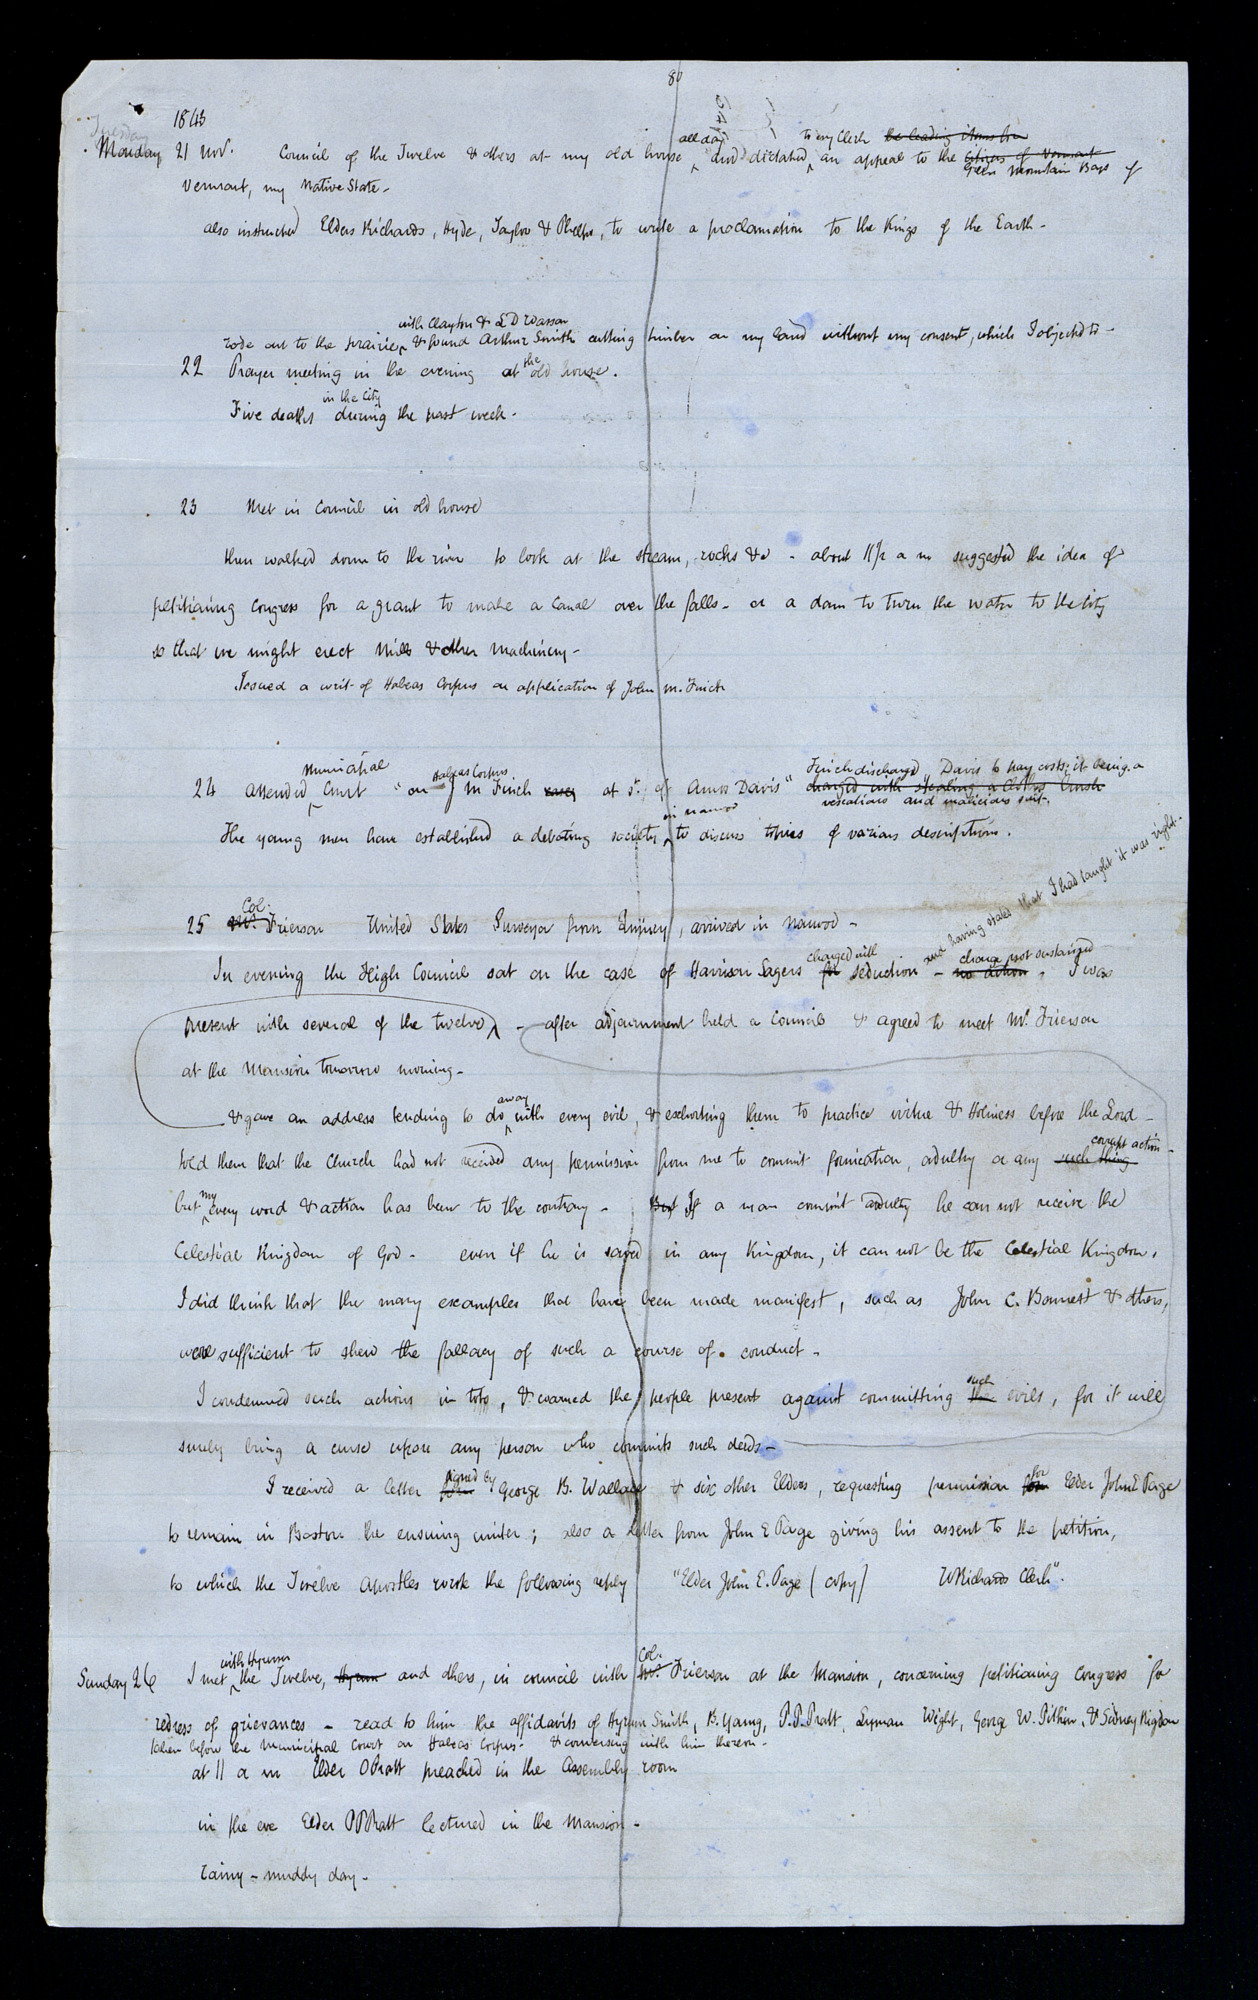 80
1843
Tuesday
Monday 21 Nov. Council of the Twelve & others at my old house all day, and dictated to my Clerk the leading items for an appeal to the Citizens of Vermont Green Mountain Boys of
Vermont, my Native State -
also instructed Elders Richards, Hyde, Taylor & Phelps, to write a proclamation to the Kings of the Earth -
with Clayton & L D Wasson
rode out to the prairie, & found Arthur Smith cutting timber on my land without my consent, which I objected to -
22 Prayer meeting in the evening at the old house.
in the City
Five deaths during the past week -
23 Met in Council in old house
then walked down to the river to look at the stream, rocks &c - about 11½ a m suggested the idea of
petitioning Congress for a grant to make a Canal over the falls - or a dam to turn the water to the City
so that we might erect Mills & other Machinery -
Issued a writ of Habeas Corpus on application of John M. Finch
Municipal Habeas Corpus Finch discharged Davis to pay costs; it being a
24 Attended Court "on J M Finch at s. of Amos Davis" charged with stealing a Clothes brush
vexatious and malicious suit.
in Nauvoo
The young men have established a debating society to discuss topics of various descriptions.
25 Mr. Col. Frierson United States Surveyor from Quincy, arrived in Nauvoo -
and having stated that I had taught it was right -
In evening the High Council sat on the case of Harrison Sagers for charged with seduction - no action charge not sustained. I was
present with several of the twelve, - after adjournment held a Council & agreed to meet Mr. Frierson
at the Mansion tomorrow morning -
& gave an address tending to do away with every evil, & exhorting them to practice virtue & Holiness before the Lord -
told them that the Church had not received any permission from me to commit fornication, adultry or any such thing corrupt action -
but my every word & action has been to the contrary - But If a man commit adultry he can not receive the
Celestial Kingdom of God - even if he is saved in any Kingdom, it can not be the Celestial Kingdom.
I did think that the many examples that have been made manifest, such as John C. Bennett & others,
were sufficient to shew the fallacy of such a course of conduct -
I condemned such actions in toto, & warned the people present against committing the such evils, for it will
surely bring a curse upon any person who commits such deeds -
I received a letter from signed by George B. Wallace & six other Elders, requesting permission for Elder John E Page
to remain in Boston the ensuing winter; also a letter from John E Page giving his assent to the petition,
to which the Twelve Apostles wrote the following reply "Elder John E. Page (copy) W Richards Clerk".
Sunday 26 I met with Hyrum the Twelve, Hyrum and others, in council with Mr. Col. Frierson at the Mansion, concerning petitioning Congress for
redress of grievances - read to him the affidavits of Hyrum Smith, B. Young, P. P. Pratt, Lyman Wight, George W. Pitkin, & Sidney Rigdon
taken before the Municipal Court on Habeas Corpus - & conversing with him thereon -
at 11 a m Elder O Pratt preached in the Assembly room
in the eve Elder P P Pratt lectured in the Mansion -
rainy - muddy day -